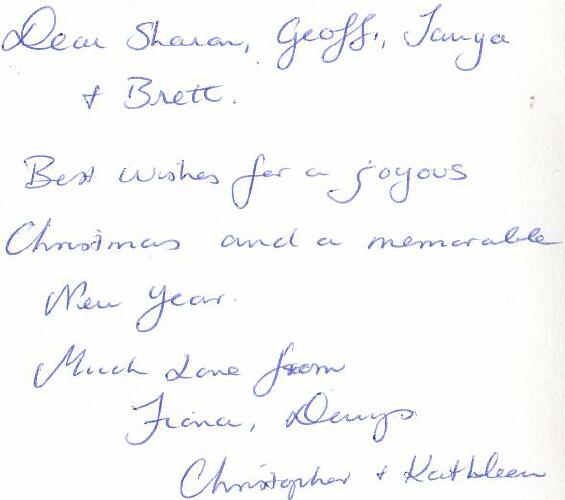 Dear Sharon, Geoff, Tanya
+ Brett.
Best wishes for a joyous
Christmas and a memorable
New Year.
Much Love from
Fiona, Denys
Christopher + Kathleen